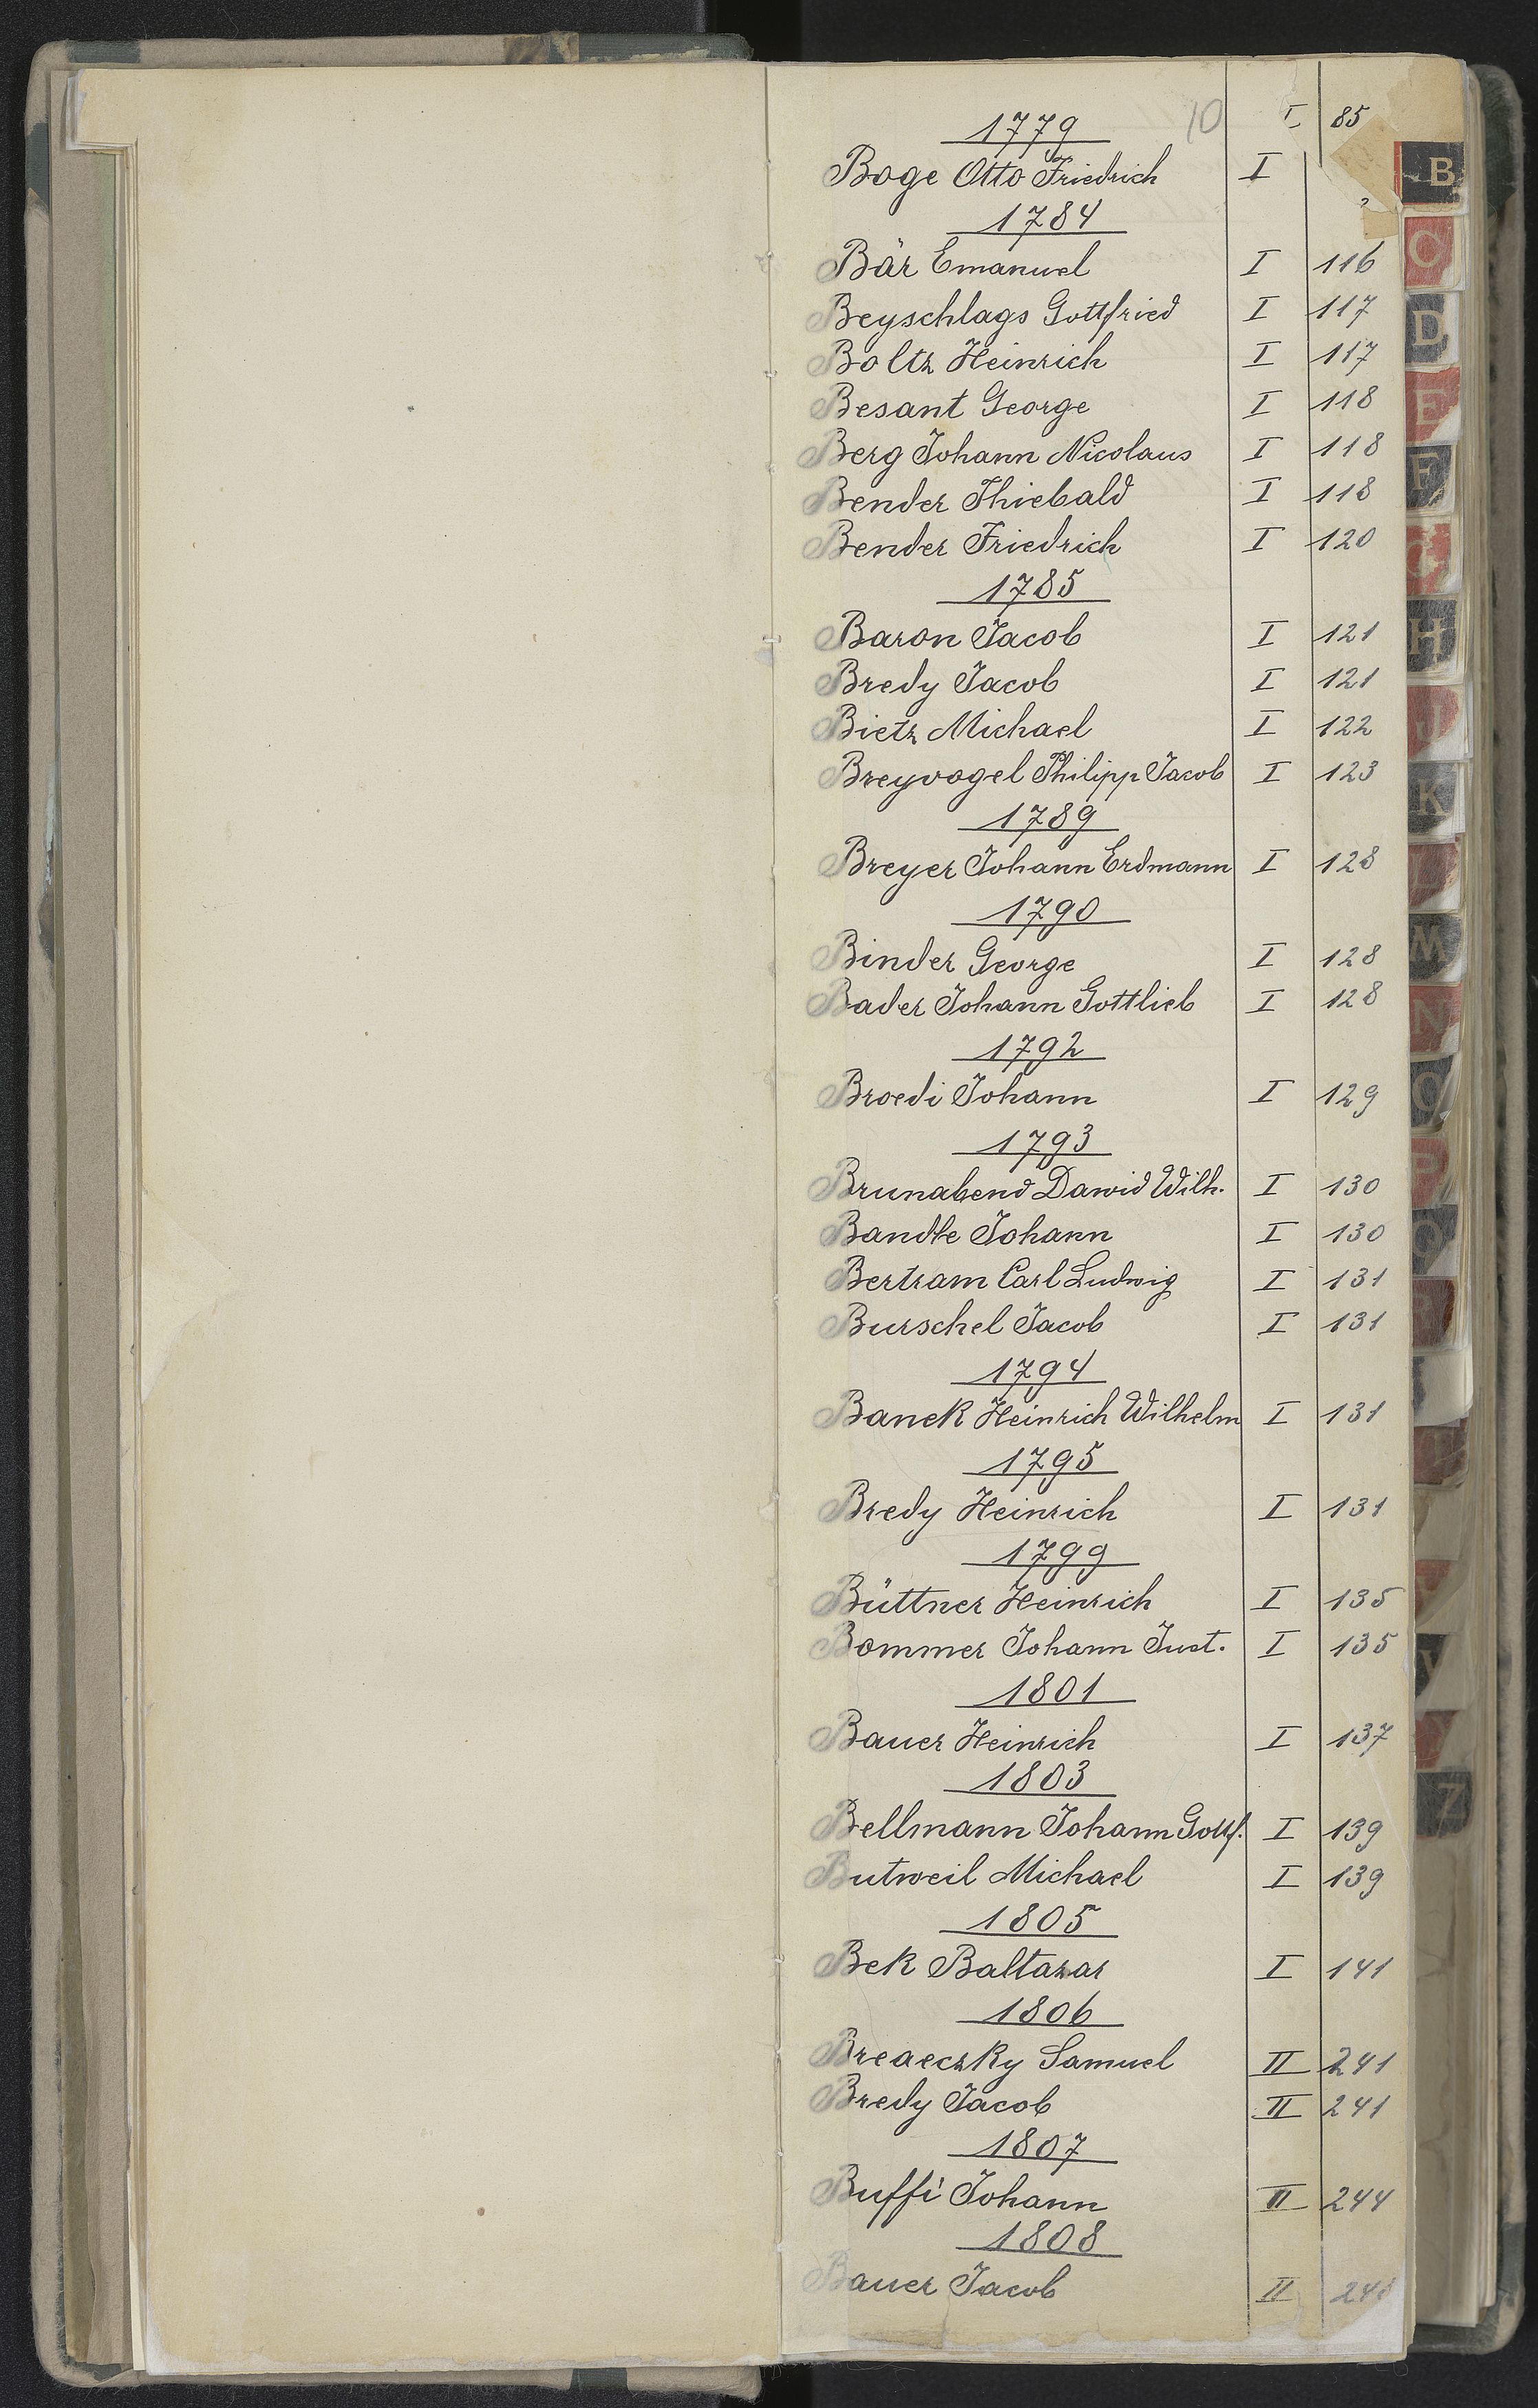 10 I 85
1779
Boge Otto Friedrich I
1784
Bär Emanuel I 116
Beyschlags Gottfried I 117
Boltz Heinrich I 117
Besant George I 118
Berg Johann Nicolaus I 118
Bender Thiebald I 118
Bender Friedrich I 120
1785
Baron Jacob I 121
Bredy Jacob I 121
Bietz Michael I 122
Breyvogel Philipp Jacob I 123
1789
Breyer Johann Erdmann I 128
1790
Binder George I 128
Bader Johann Gottlieb I 128
1792
Broedi Johann I 129
1793
Brunabend Dawid Wilh. I 130
Bandte Johann I 130
Bertram Carl Ludwig I 131
Burschel Jacob I 131
1794
Banek Heinrich Wilhelm I 131
1795
Bredy Heinrich I 131
1799
Büttner Heinrich I 135
Bommer Johann Just. I 135
1801
Bauer Heinrich I 137
1803
Bellmann Johann Gottf. I 139
Butweil Michael I 139
1805
Bek Baltazar I 141
1806
Breaeczky Samuel II 241
Bredy Jacob II 241
1807
Buffi Johann II 244
1808
Bauer Jacob II
B
C
D
E
F
G
H
J
K
L
M
N
O
P
Q
R
Z